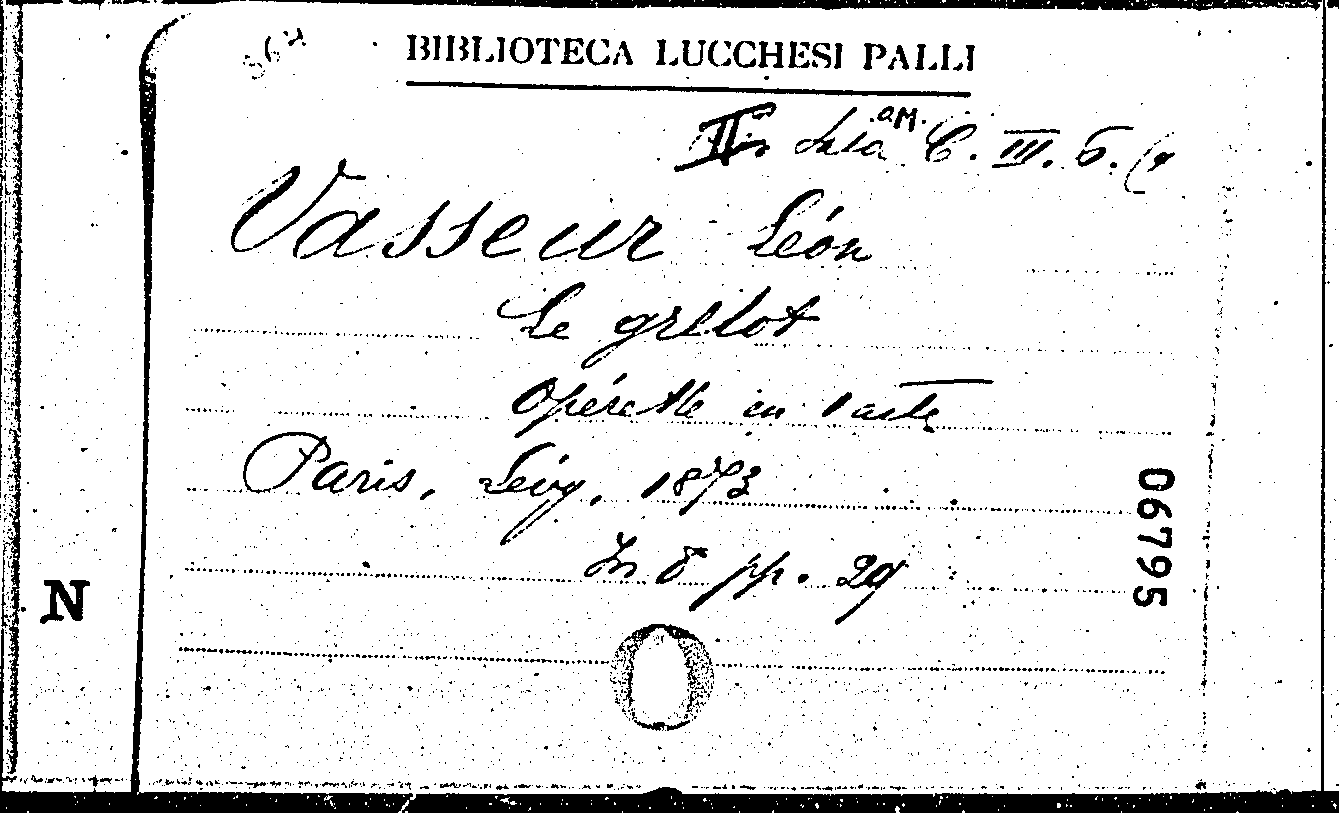 BIBLIOTECA LUCCHESI PALLI
II Sala C. III. 6.
Vasseur Léon
Le grelot
Opérette en 1 acte
Paris, Lévy, 1873
In 8 pp. 29
06795
N